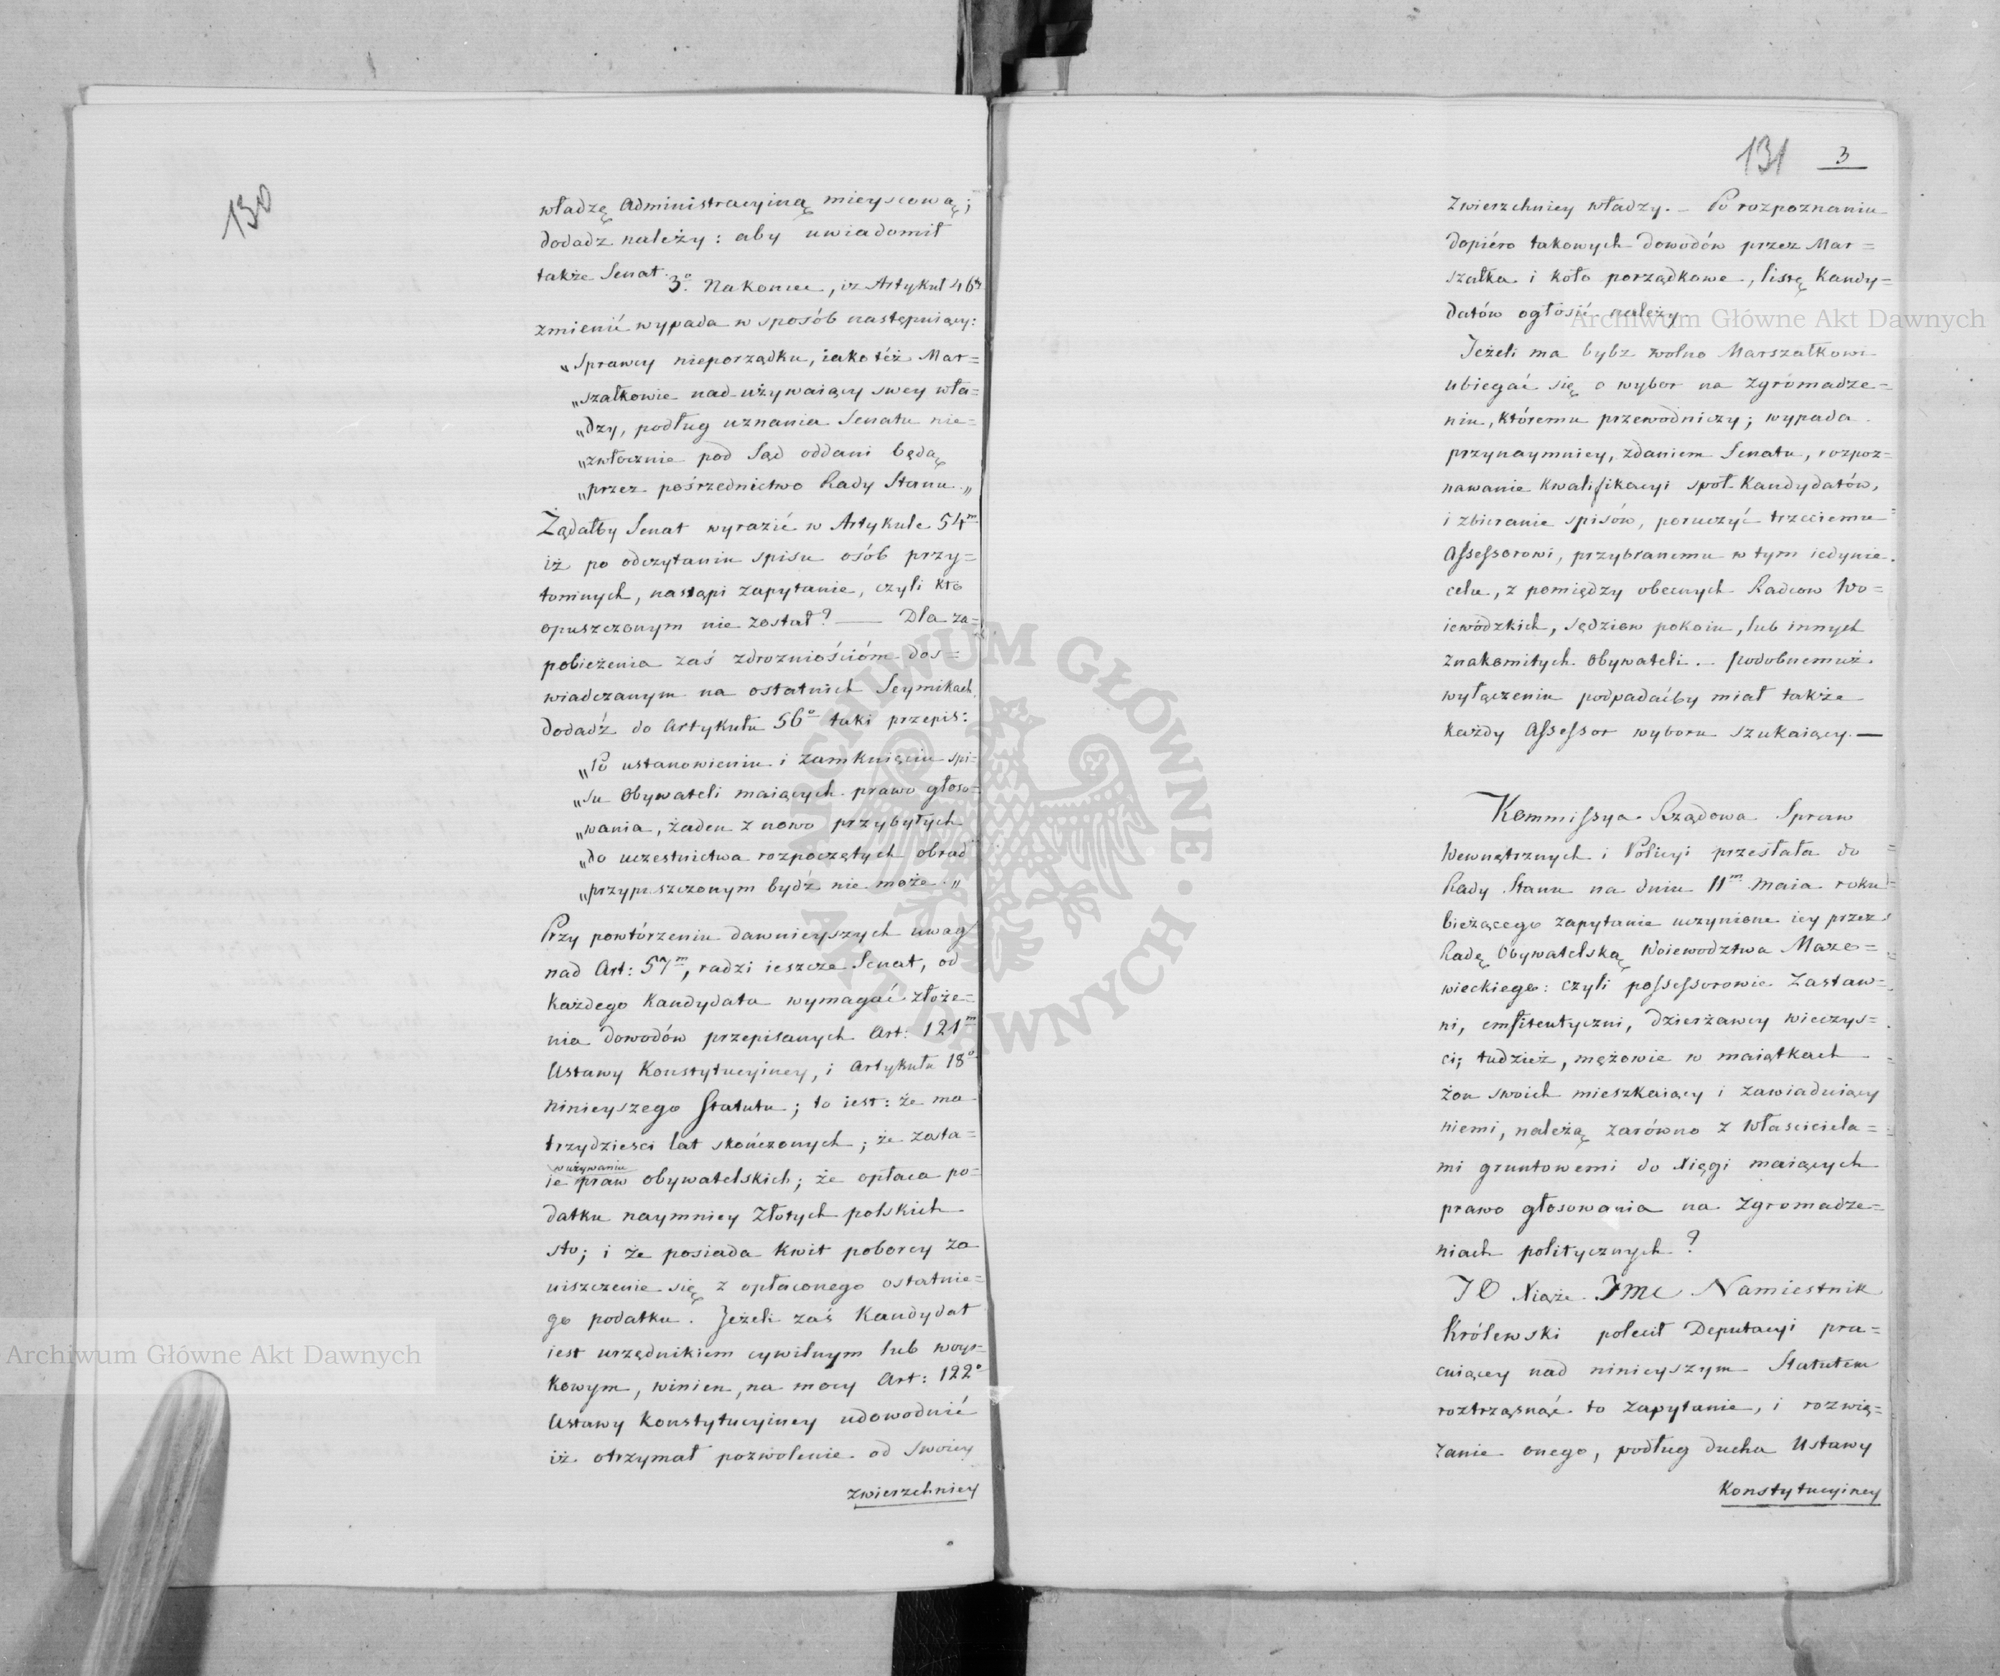 130
władzę Administracyiną mieyscową;
dodadz należy: aby uwiadomił
także Senat.
3º Nakoniec, iż Artykuł 46ty
zmienić wypada w sposób następuiący:
„Sprawcy nieporządku, iako też Mar=
„szałkowie nad-używaiący swey wła=
„dzy, podług uznania Senatu nie=
„zwłocznie pod Sąd oddani będą
„przez pośrzednictwo Rady Stanu.„
Żądałby Senat wyrazić w Artykule 54m
iż po odczytaniu spisu osób przy=
tomnych, nastąpi zapytanie, czyli kto
opuszczonym nie został? — Dla za=
pobieżenia zaś zdrożnościóm dos=
wiadczanym na ostatnich Seymikach
dodadź do Artykułu 56º taki przepis:
„Po ustanowieniu i zamknięciu spi=
„su Obywateli maiących prawo głoso=
„wania, żaden z nowo przybyłych
„do uczestnictwa rozpoczętych obrad
„przypuszczonym bydź nie może.„
Przy powtórzeniu dawnieyszych uwag
nad Art: 57m, radzi ieszcze Senat, od
każdego Kandydata wymagać złoże=
nia dowodów przepisanych Art: 121m
Ustawy Konstytucyiney, i Artykułu 18º
ninieyszego Statutu; to iest: że ma
trzydzieści lat skończonych; że zosta=
w używaniu
ie praw obywatelskich; że opłaca po=
datku naymniey Złotych polskich
sto; i że posiada Kwit poborcy za
uiszczenie się z opłaconego ostatnie=
go podatku. Jeżeli zaś Kandydat
iest urzędnikiem cywilnym lub woys=
kowym, winien, na mocy Art: 122º
Ustawy Konstytucyiney udowodnić
iż otrzymał pozwolenie od swoiey
zwierzchniey
131 3
Zwierzchniey władzy. — Po rozpoznaniu
dopiéro takowych dowodów przez Mar=
szałka i koło porządkowe, listę Kandy=
datów ogłosić należy.
Jeżeli ma bydz wolno Marszałkowi
ubiegać się o wybor na Zgromadze=
niu, któremu przewodniczy; wypada
przynaymniey, zdaniem Senatu, rozpoz=
nawanie Kwalifikacyi spół-Kandydatów,
i zbieranie spisów, poruczyć trzeciemu
Assessorowi, przybranemu w tym iedynie
celu, z pomiędzy obecnych Radcow Wo=
iewódzkich, sędziow pokoiu, lub innych
znakomitych Obywateli. — Podobnemuż
wyłączeniu podpadaćby miał także
każdy Assessor wyboru szukaiący. —
Kommissya Rządowa Spraw
Wewnętrznych i Policyi przesłała do
Rady Stanu na dniu 11m Maia roku
bieżącego zapytanie uczynione iey przez
Radę Obywatelską Woiewodztwa Mazo=
wieckiego: czyli possessorowie Zastaw=
ni, emfiteutyczni, dzierżawcy wieczys=
ci; tudzież, mężowie w maiątkach
żon swoich mieszkaiący i zawiaduiący
niemi, należą zarówno z Właściciela=
mi gruntowemi do Xięgi maiących
prawo głosowania na Zgromadze=
niach politycznych?
JO Xiąże Jmc Namiestnik
Królewski polecił Deputacyi pra=
cuiącey nad ninieyszym Statutem
roztrząsnąć to zapytanie, i rozwią=
zanie onego, podług ducha Ustawy
Konstytucyiney
Archiwum Główne Akt Dawnych
Archiwum Główne Akt Dawnych
ARCHIWUM GŁÓWNE · AKT DAWNYCH ·